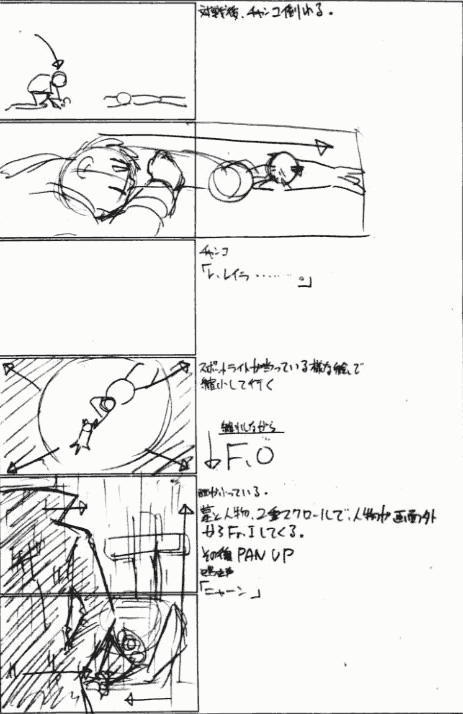 対戦後、チャンコ倒れる。
チャンコ
「レ、レイニ………。」
スポットライトが当っている様な絵で
縮小して行く
縮小しながら
F.O
雨がふっている。
墓と人物、2重スクロールで、人物が画面外
からFr.Iしてくる。
その後PAN UP
「ニャーン」